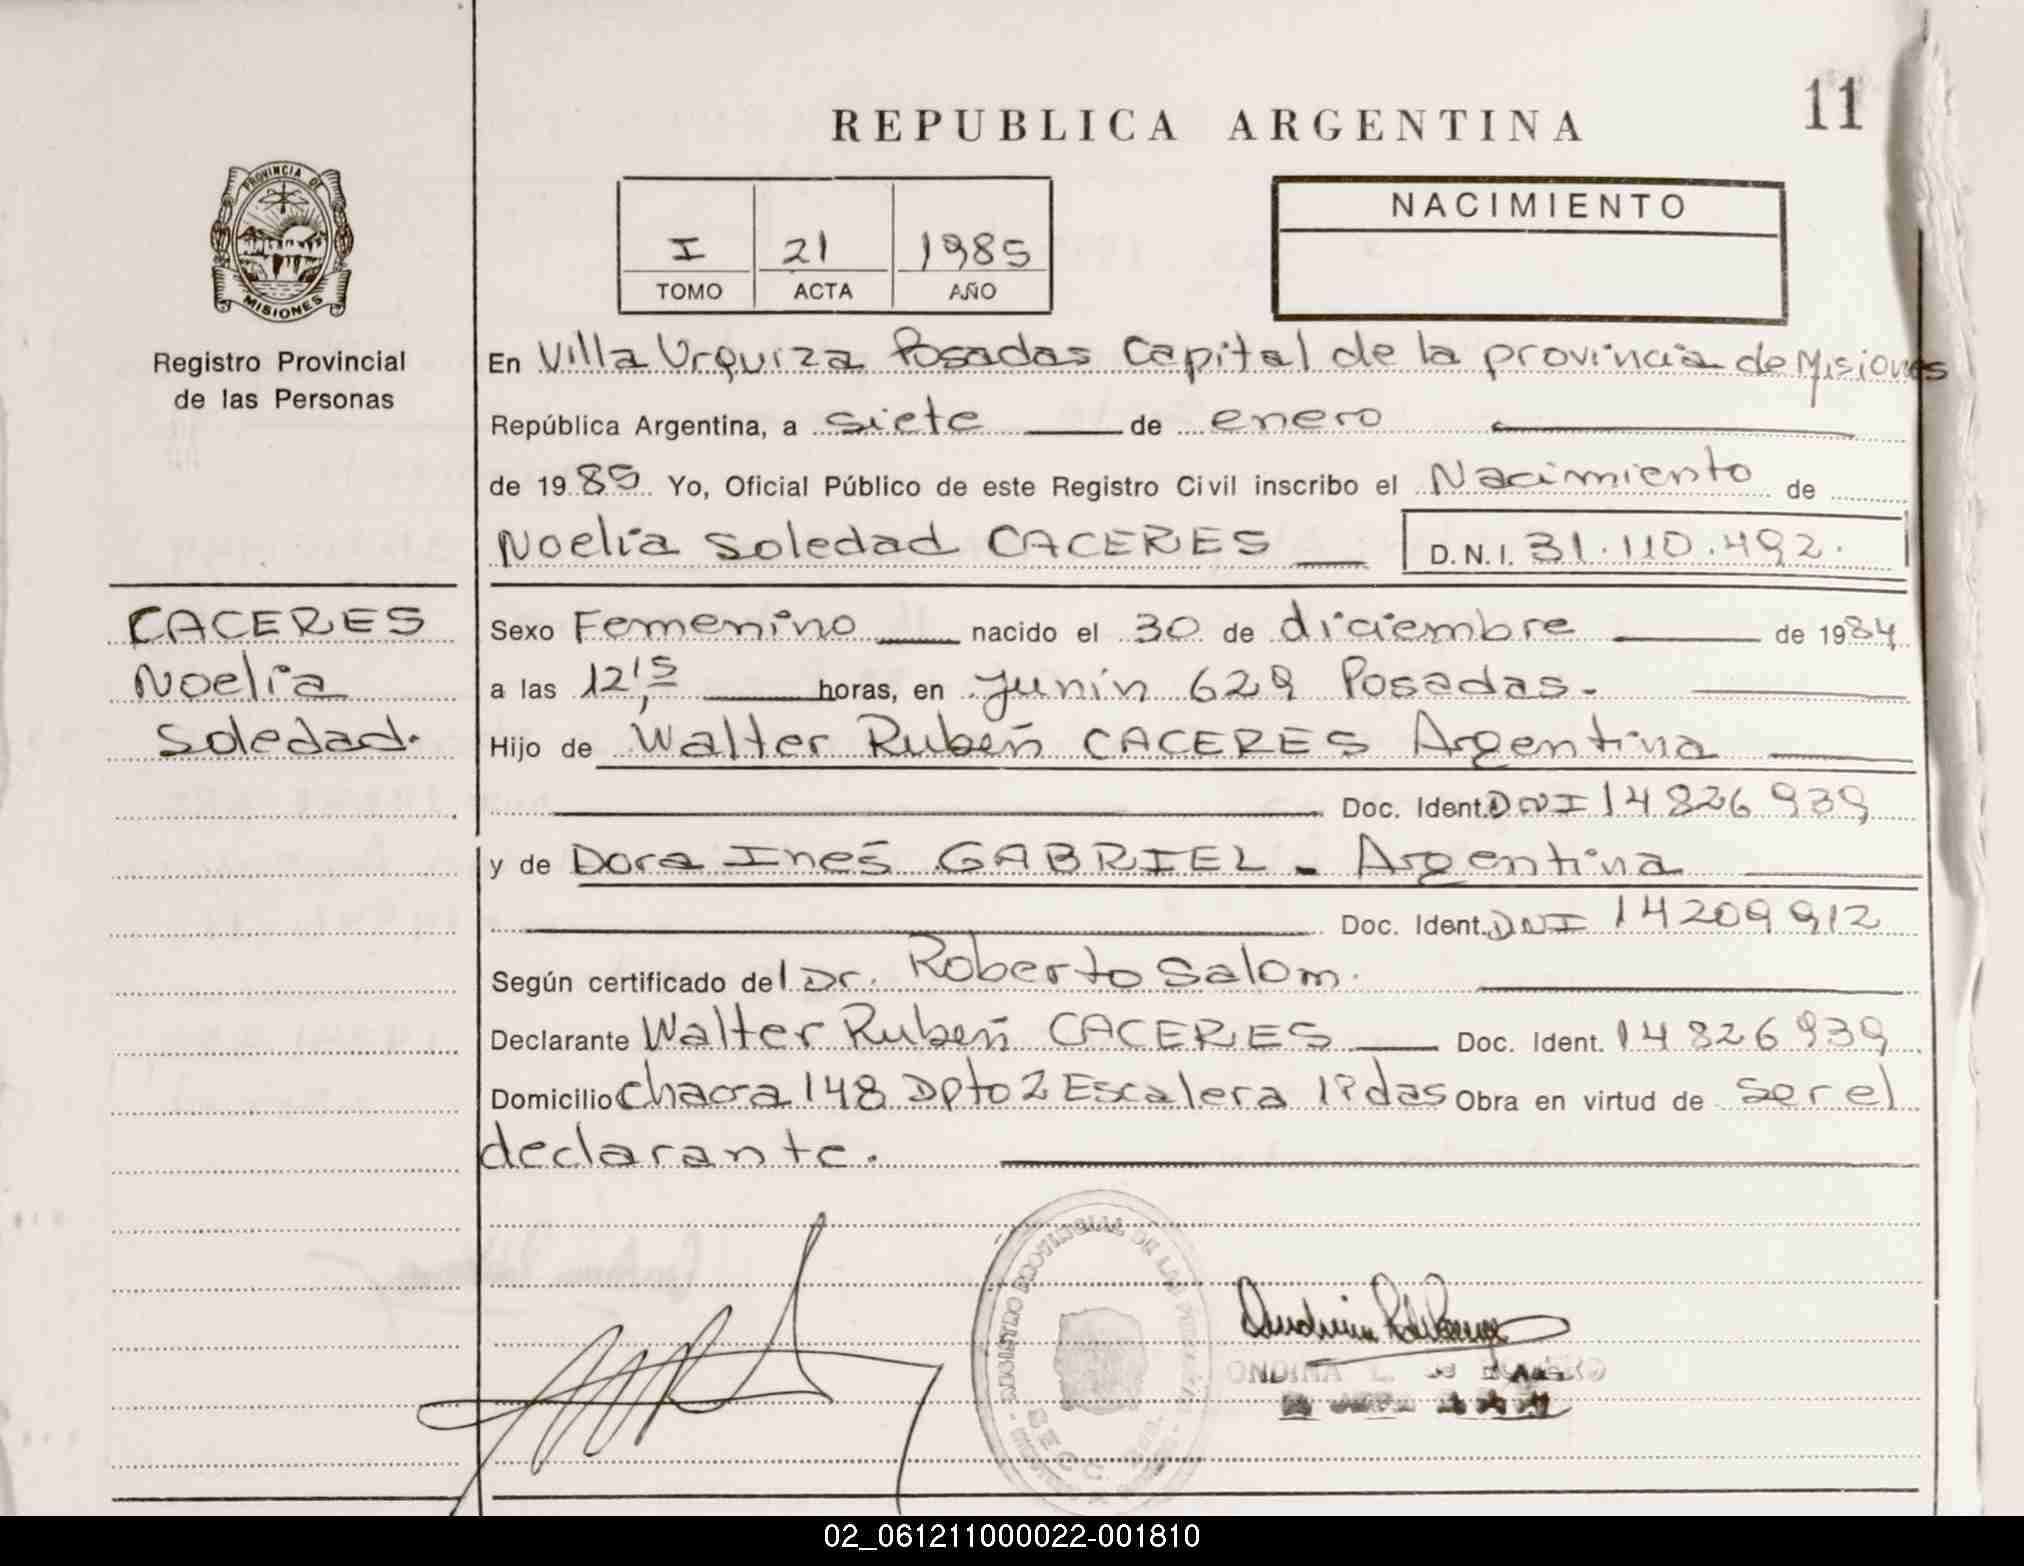 11
REPUBLICA ARGENTINA
PROVINCIA DE
MISIONES
Registro Provincial
de las Personas
I 21 1985
TOMO ACTA AÑO
NACIMIENTO
En Villa Urquiza Posadas Capital de la provincia de Misiones
República Argentina, a siete de enero
de 1985 Yo, Oficial Público de este Registro Civil inscribo el Nacimiento de
Noelia Soledad CACERES D.N.I. 31.110.492.
CACERES
Noelia
Soledad.
Sexo Femenino nacido el 30 de diciembre de 1984
a las 12,15 horas, en Junin 629 Posadas.
Hijo de Walter Rubén CACERES Argentina
Doc. Ident. DNI 14826939
y de Dora Inés GABRIEL - Argentina
Doc. Ident. DNI 14209912
Según certificado del Dr. Roberto Salom.
Declarante Walter Rubén CACERES Doc. Ident. 14826939
Domicilio chacra 148 Dpto 2 Escalera 1 Pdas Obra en virtud de ser el
declarante.
REGISTRO PROVINCIAL DE LAS
SECC.
02_061211000022-001810